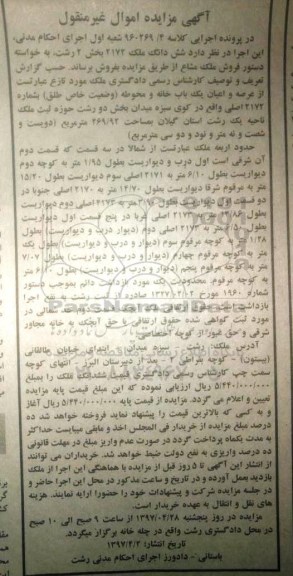 آگهی مزایده اموال غیرمنقول
در پرونده اجرایی کلاسه ۴/ ۹۶-۲۶۹ شعبه اول اجرای احکام مدنی،
این اجرا در نظر دارد شش دانگ ملک ۲۱۷۲ بخش ۲ رشت، به خواسته
دستور فروش ملک مشاع از طریق مزایده بفروش برساند. حسب گزارش
تعریف و توصیف کارشناس رسمی دادگستری ملک مورد نظر عبارتست
از عرصه و اعیان یک باب خانه و محوطه (وضعیت خاص طلق) بشماره
۲۱۷۲ اصلی واقع در کوی سبزه میدان بخش دو رشت حوزه ثبت ملک
ناحیه یک رشت استان گیلان بمساحت ۲۶۹/۹۲ مترمربع (دویست و
شصت و نه متر و نود و دو سی مترمربع)
حدود اربعه ملک عبارتست از شمالا در سه قسمت که قسمت دوم
آن شرقی است اول درب و دیواریست بطول ۱/۹۵ متر به کوچه دوم
دیواریست بطول ۶/۱۰ متر به ۲۱۷۱ اصلی سوم دیواریست بطول ۱۵/۲۰
متر به مرقوم شرقا دیواریست بطول ۱۴/۷۰ متر به ۲۱۷۰ اصلی جنوبا در
دو قسمت اول دیواریست بطول متر به ۲۱۷۴ اصلی دوم دیواریست
بطول متر به ۲۱۷۳ اصلی غربا در پنج قسمت اول دیواریست
بطول متر به ۲۱۷۳ اصلی دوم (دیوار درب و دیواریست) بطول
متر به کوچه مرقوم سوم (دیوار و درب و دیواریست) بطول یک
متر به کوچه مرقوم چهارم (دیوار و درب و دیواریست) بطول ۷/۰۷
متر به کوچه مرقوم پنجم (دیوار و درب و دیواریست) بطول
متر به کوچه مرقوم. محدودیت یک مورد بازداشت دائم بموجب دستور
شماره ۱۹۶۰ مورخ صادره رشت به نفع اجرا
بازداشت
مورد ثبت گواهی شده حقوق ارتفاقی با حق آبچک به خانه مجاور
شرقی و حق عبور از کوچه اختصاصی
آدرس ملک: رشت - سبزه میدان - ابتدای خیابان طالقانی
(بیستون) - کوچه - بعد از دبیرستان البرز - انتهای کوچه
سمت چپ کارشناس رسمی دادگستری قیمت ملک را بمبلغ
۵/۴۴۰/۰۰۰/۰۰۰ ریال ارزیابی نموده که این مبلغ قیمت پایه مزایده
تعیین و اعلام می گردد. مزایده از قیمت پایه ۵/۴۴۰/۰۰۰/۰۰۰ ریال آغاز
و به کسی که بالاترین قیمت را پیشنهاد نماید فروخته خواهد شد ده
درصد مبلغ مزایده از خریدار فی المجلس اخذ و مابقی میبایست حداکثر
به مدت یکماه پرداخت گردد در صورت عدم واریز مبلغ در مهلت قانونی
ده درصد واریزی به نفع دولت ضبط خواهد شد. خریداران می توانند
از انتشار این آگهی تا ۵ روز قبل از مزایده با هماهنگی این اجرا از ملک
بازدید بعمل آورده و در تاریخ و ساعت مذکور در محل این اجرا حاضر و
در جلسه مزایده شرکت و پیشنهادات خود را حضورا ارایه نمایند. هزینه
های نقل و انتقال به عهده خریدار است.
مزایده در روز پنجشنبه ۱۳۹۷/۰۴/۲۸ از ساعت ۹ صبح الی ۱۰ صبح
در محل دادگستری رشت واقع در چله خانه برگزار میگردد.
تاریخ انتشار: ۱۳۹۷/۴/۲
باستانی - دادورز اجرای احکام مدنی رشت